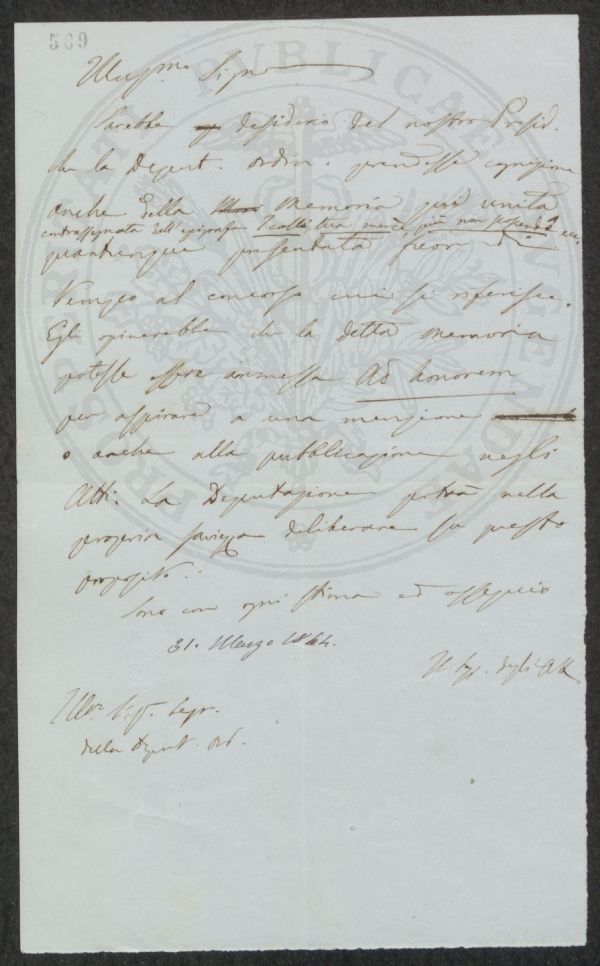 569
Illustmo Signor
Sarebbe desiderio del nostro Presid.
che la Deput. ordin. prendesse cognizione
anche della memoria qui unita
contrassegnata dall'epigrafe
quantunque presentata fuori di
tempo al concorso cui si riferisce.
Egli opinerebbe che la detta memoria
potesse essere ammessa ad honorem
per aspirare a una menzione
o anche alla pubblicazione negli
Atti. La Deputazione potrà nella
propria saviezza deliberare su questo
proposito.
Sono con ogni stima ed ossequio
31. Marzo 1864.
Il Seg. degli Atti
Ill. Sig. Segr.
della Deput. Ord.
PUBLICAE
PROSPERITATI
AUGENDAE